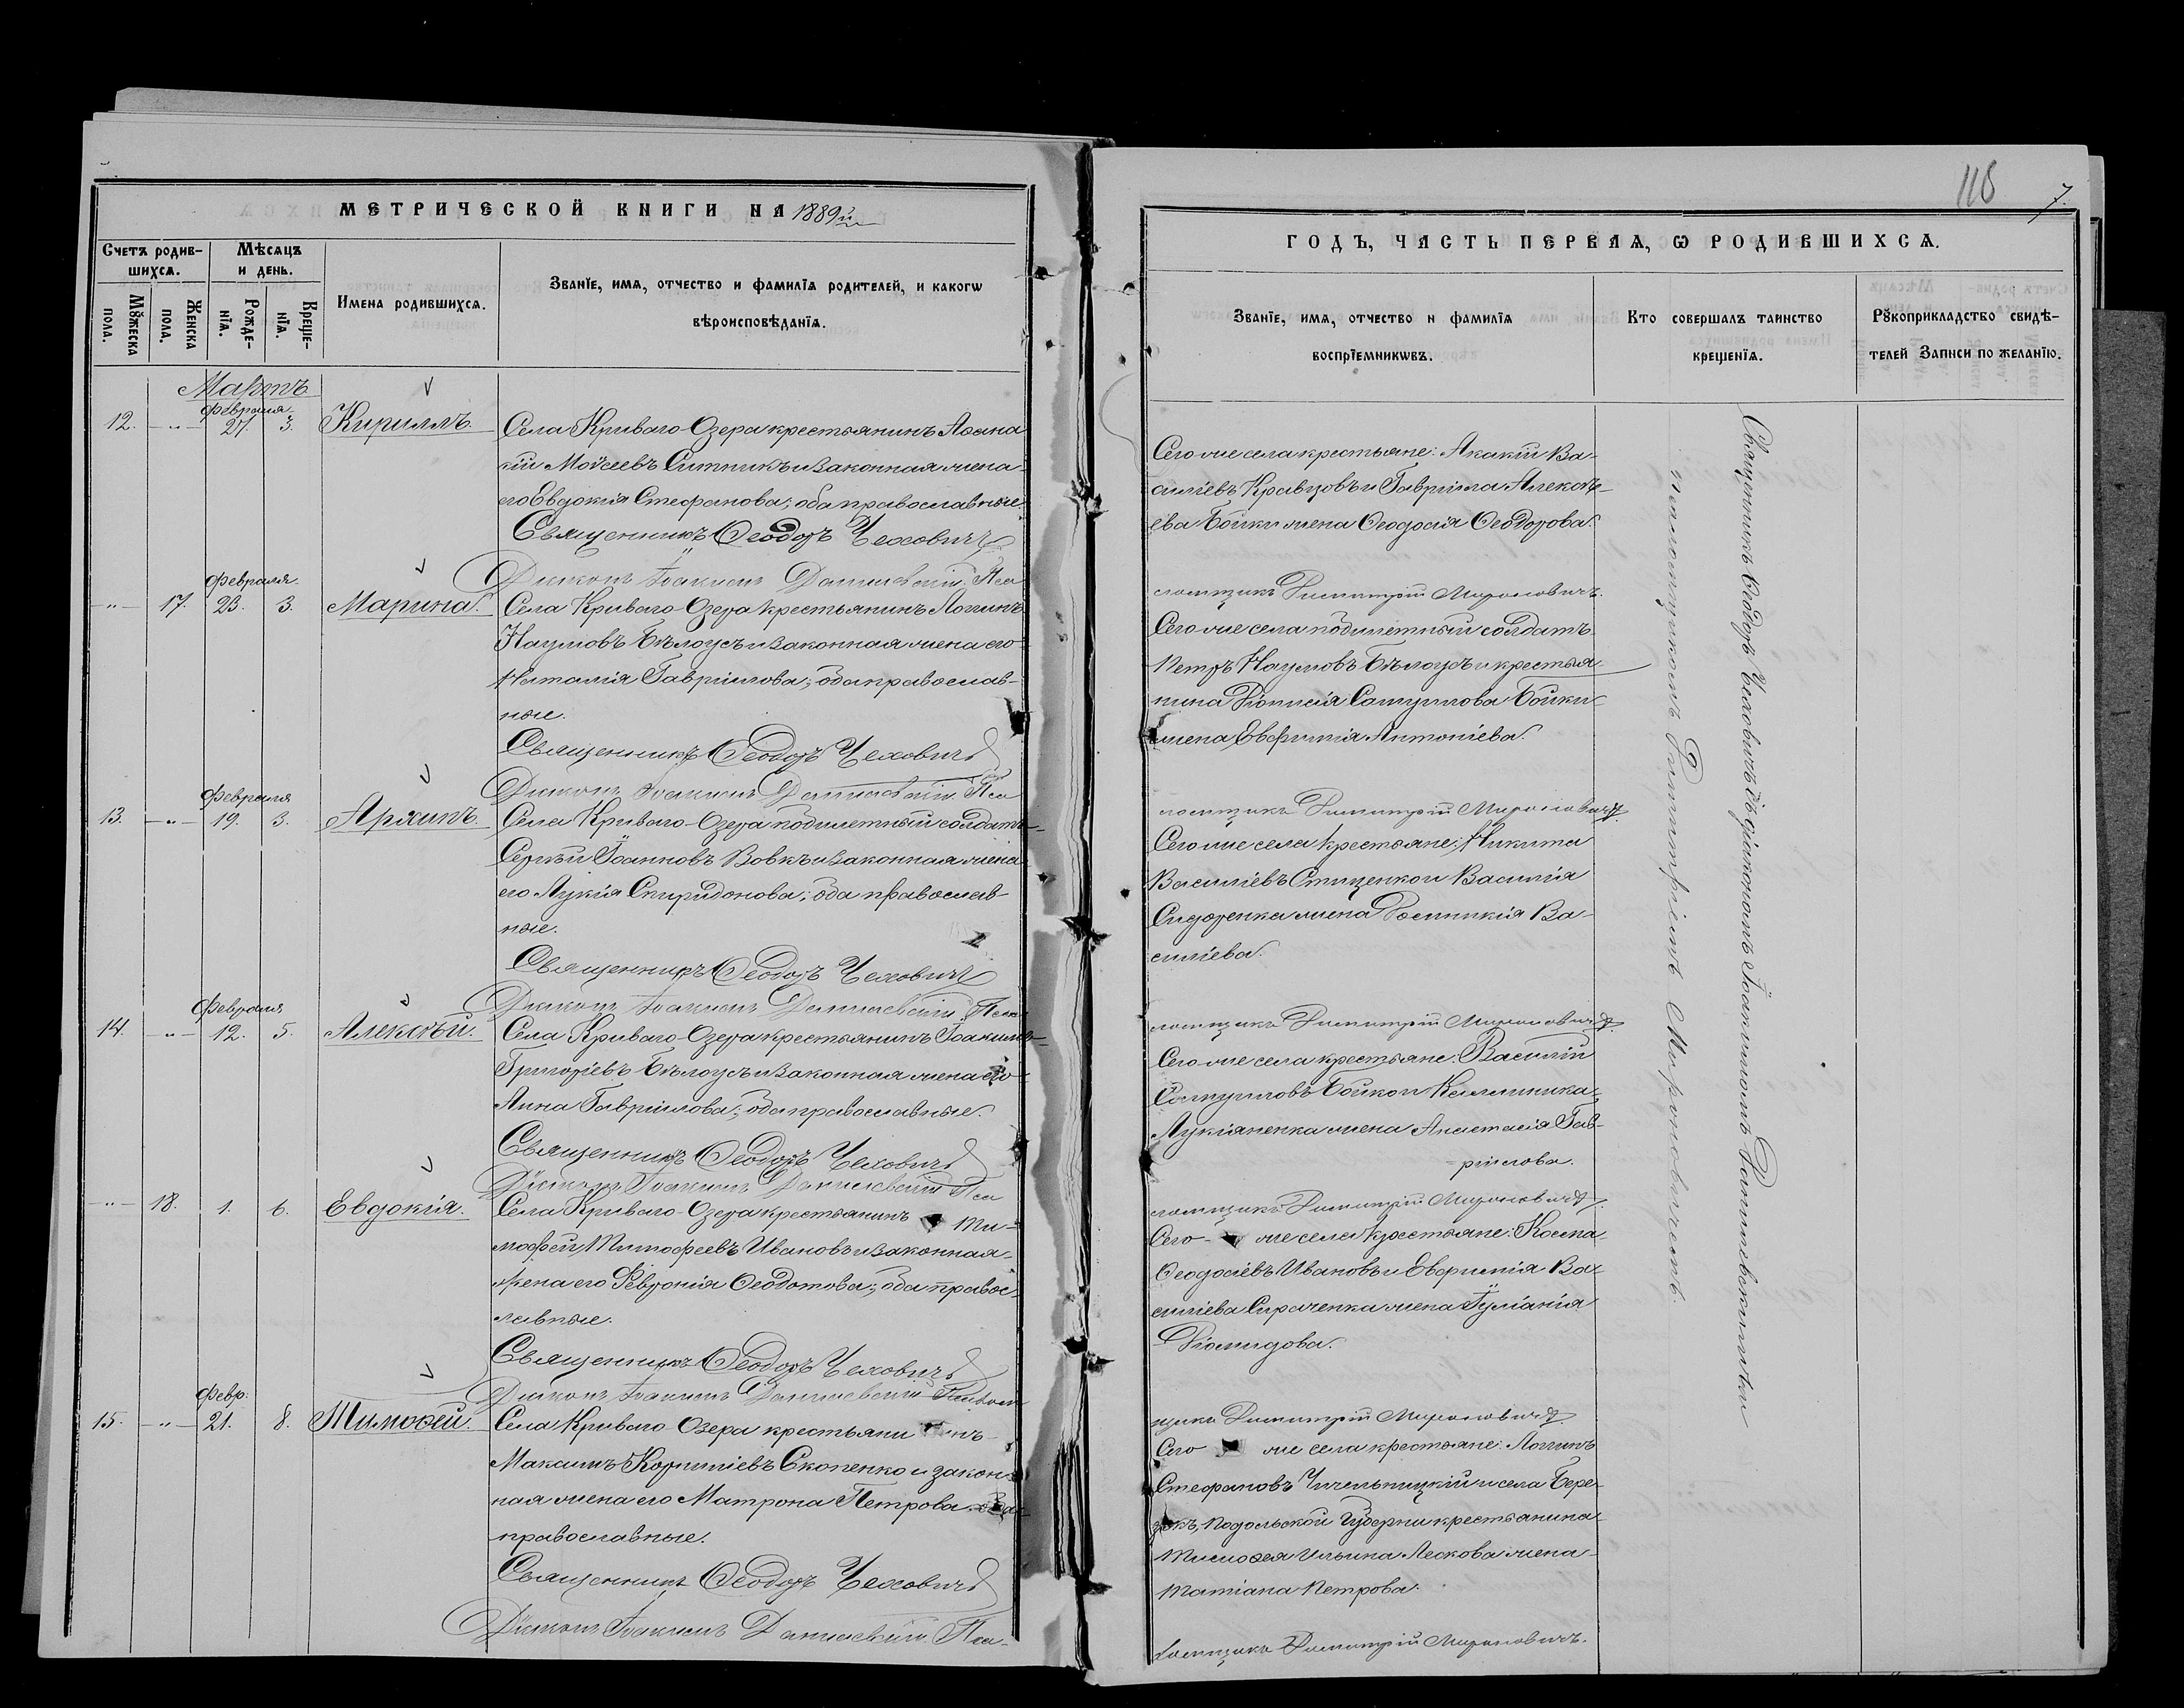 МЕТРИЧЕСКОЙ КНИГИ НА 1889й
Счетъ родив-
шихся.
Мѣсяцъ
и день.
Мꙋжеска
пола.
Женска
пола.
Рожде-
нїѧ.
Креще-
нїѧ.
Имена родившихсѧ.
Званїе, имѧ, отчество и фамилїѧ родителей, и какогѡ
вѣроисповѣданїѧ.
Мартъ
12. -"- Февраля 27. 3. Кириллъ.
Села Криваго-Озера крестьянинъ Аѳана
сій Моѵсеевъ Ситникъ и законная жена
его Евдокія Стефанова; оба православные.
Священникъ Ѳеодоръ Чехович
Діаконъ Іоакимъ Данилевскій. Пса
-"- 17. Февраля 23. 3. Марина.
Села Криваго-Озера крестьянинъ Логгинъ
Наумовъ Бѣлоусъ и законная жена его
Наталія Гавріилова; оба православ-
ные.
Священникъ Ѳеодоръ Чехович
Діаконъ Іоакимъ Данилевскій. Пса
13. -"- Февраля 19. 3. Архипъ.
Села Криваго-Озера подбилетный солдатъ
Сергѣй Іоанновъ Вовкъ и законная жена
его Лукія Спиридонова; оба православ-
ные.
Священникъ Ѳеодоръ Чехович
Діаконъ Іоакимъ Данилевскій. Пса
14. -"- Февраля 12. 5. Алексѣй.
Села Криваго-Озера крестьянинъ Іоакимъ
Григоріевъ Бѣлоусъ и законная жена его
Анна Гавріилова; оба православные.
Священникъ Ѳеодоръ Чехович
Діаконъ Іоакимъ Данилевскій Пса
-"- 18. 1. 6. Евдокія.
Села Криваго-Озера крестьянинъ Ти-
моѳей Тимоѳеевъ Ивановъ и законная
жена его Февронія Ѳеодотова; оба правос-
лавные.
Священникъ Ѳеодоръ Чехович
Діаконъ Іоакимъ Данилевскій Псалом
15. -"- Февр. 21. 8. Тимоѳей.
Села Криваго-Озера крестьянинъ
Максимъ Корниліевъ Скопенко и закон-
ная жена его Матрона Петрова. оба
православные.
Священникъ Ѳеодоръ Чехович
Діаконъ Іоакимъ Данилевскій. Пса-
7.
ГОДЪ, ЧАСТЬ ПЕРВАЯ, Ѡ РОДИВШИХСѦ.
Званїе, имѧ, отчество и фамилїѧ
воспрїемникѡвъ.
Кто совершалъ таинство
крещенїѧ.
Рꙋкоприкладство свидѣ-
телей записи по желанїю.
Сего же села крестьяне: Акакій Ва-
силіевъ Кравцовъ и Гавріила Алексѣ-
ева Бойки жена Ѳеодосія Ѳеодорова.
ломщикъ Димитрій Мироновичъ.
Сего же села подбилетный солдатъ
Петръ Наумовъ Бѣлоусъ и крестья-
нина Діонисія Самуилова Бойки
жена Евфимія Антоніева.
ломщикъ Димитрій Мироновичъ
Сего же села крестьяне: Никита
Василіевъ Стищенко и Василія
Сидоренка жена Домникія Ва-
силіева.
ломщикъ Димитрій Мироновичъ.
Сего же села крестьяне: Василій
Самуиловъ Бойко и Каллиника
Лукіяненка жена Анастасія Гав-
ріилова.
ломщикъ Димитрій Мироновичъ.
Сего - же села крестьяне: Косма
Ѳеодосіевъ Ивановъ и Евфимія Ва-
силіева Сираченка жена Іуліанія
Діомидова.
щикъ Димитрій Мироновичъ
Сего же села крестьяне: Логгинъ
Стефановъ Чичельницкій и села Бере-
зокъ, Подольской губерніи крестьянина
Тимоѳея Ильина Лескова жена
Татіана Петрова.
ломщикъ Димитрій Мироновичъ.
Священникъ Ѳеодоръ Чеховичъ съ діакономъ Іоакимомъ Данилевскимъ и
псаломщикомъ Димитріемъ Мироновичемъ.